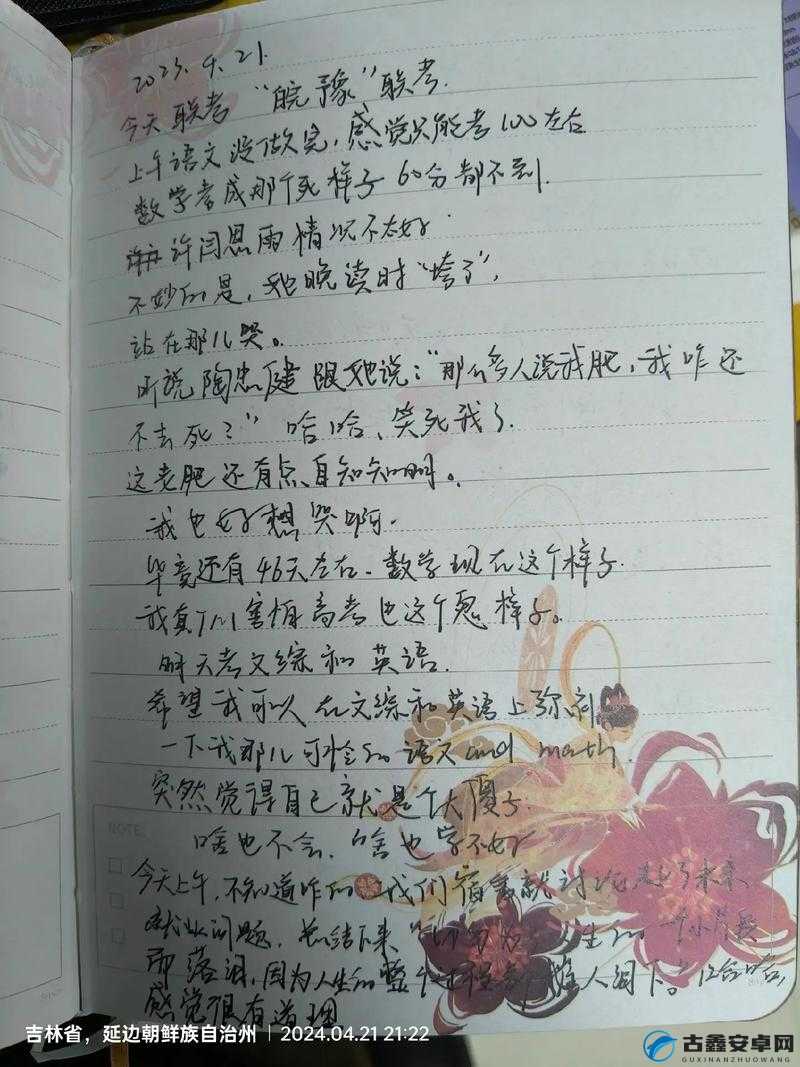 2023.4.21.
今天联考 “皖豫”联考.
上午语文没做完，感觉只能考100左右
数学考成那个死样子 60分都不到.
许闫恩雨情况不太好.
不妙的是，她晚读时“垮了”，
站在那儿哭。
听说陶忠健跟她说：“那么多人说我肥，我咋还
不去死？” 哈哈、笑死我了.
这老肥还有点自知知明。
我也好想哭啊.
毕竟还有46天左右. 数学现在这个样子.
我真TM害怕高考也这个鬼样子。
明天考文综和英语.
希望我可以在文综和英语上弥补
一下我那儿可怜的语文and math.
突然觉得自己就是个大傻子.
啥也不会. 啥也学不好
NOTE
今天上午，不知道咋的 我们宿舍就讨论起了未来
就业问题. 总结下来“切勿为 人生的一个小片段
而落泪，因为人生的整个过程都催人泪下。”哈哈，
感觉很有道理
吉林省，延边朝鲜族自治州 | 2024.04.21 21:22
古鑫安卓网
GUXINANZHUOWANG